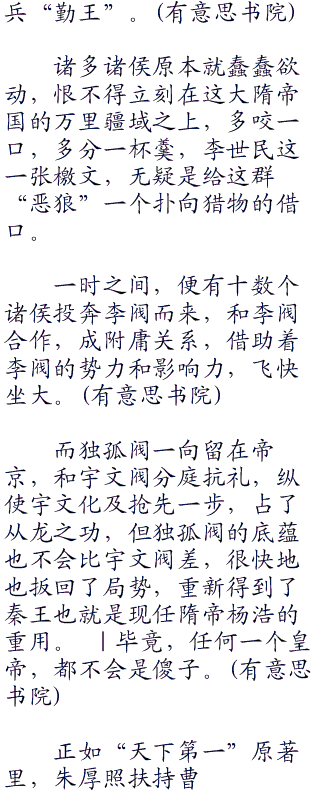 兵“勤王”。(有意思书院)
诸多诸侯原本就蠢蠢欲
动，恨不得立刻在这大隋帝
国的万里疆域之上，多咬一
口，多分一杯羹，李世民这
一张檄文，无疑是给这群
“恶狼”一个扑向猎物的借
口。
一时之间，便有十数个
诸侯投奔李阀而来，和李阀
合作，成附庸关系，借助着
李阀的势力和影响力，飞快
坐大。(有意思书院)
而独孤阀一向留在帝
京，和宇文阀分庭抗礼，纵
使宇文化及抢先一步，占了
从龙之功，但独孤阀的底蕴
也不会比宇文阀差，很快地
也扳回了局势，重新得到了
秦王也就是现任隋帝杨浩的
重用。 |毕竟，任何一个皇
帝，都不会是傻子。(有意思
书院)
正如“天下第一”原著
里，朱厚照扶持曹